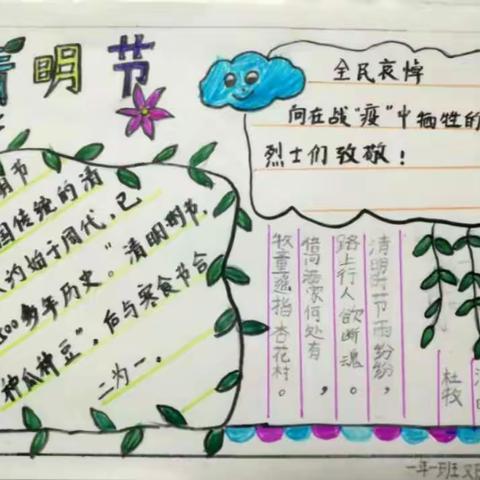 清明节
明节
国传统的清
约始于周代，已
500多年历史。“清明
种瓜种豆”。后与寒食节合
二为一。
全民哀悼
向在战“疫”中牺牲的
烈士们致敬！
清明时节雨纷纷，
路上行人欲断魂。
借问酒家何处有，
牧童遥指杏花村。
杜牧
一年一班